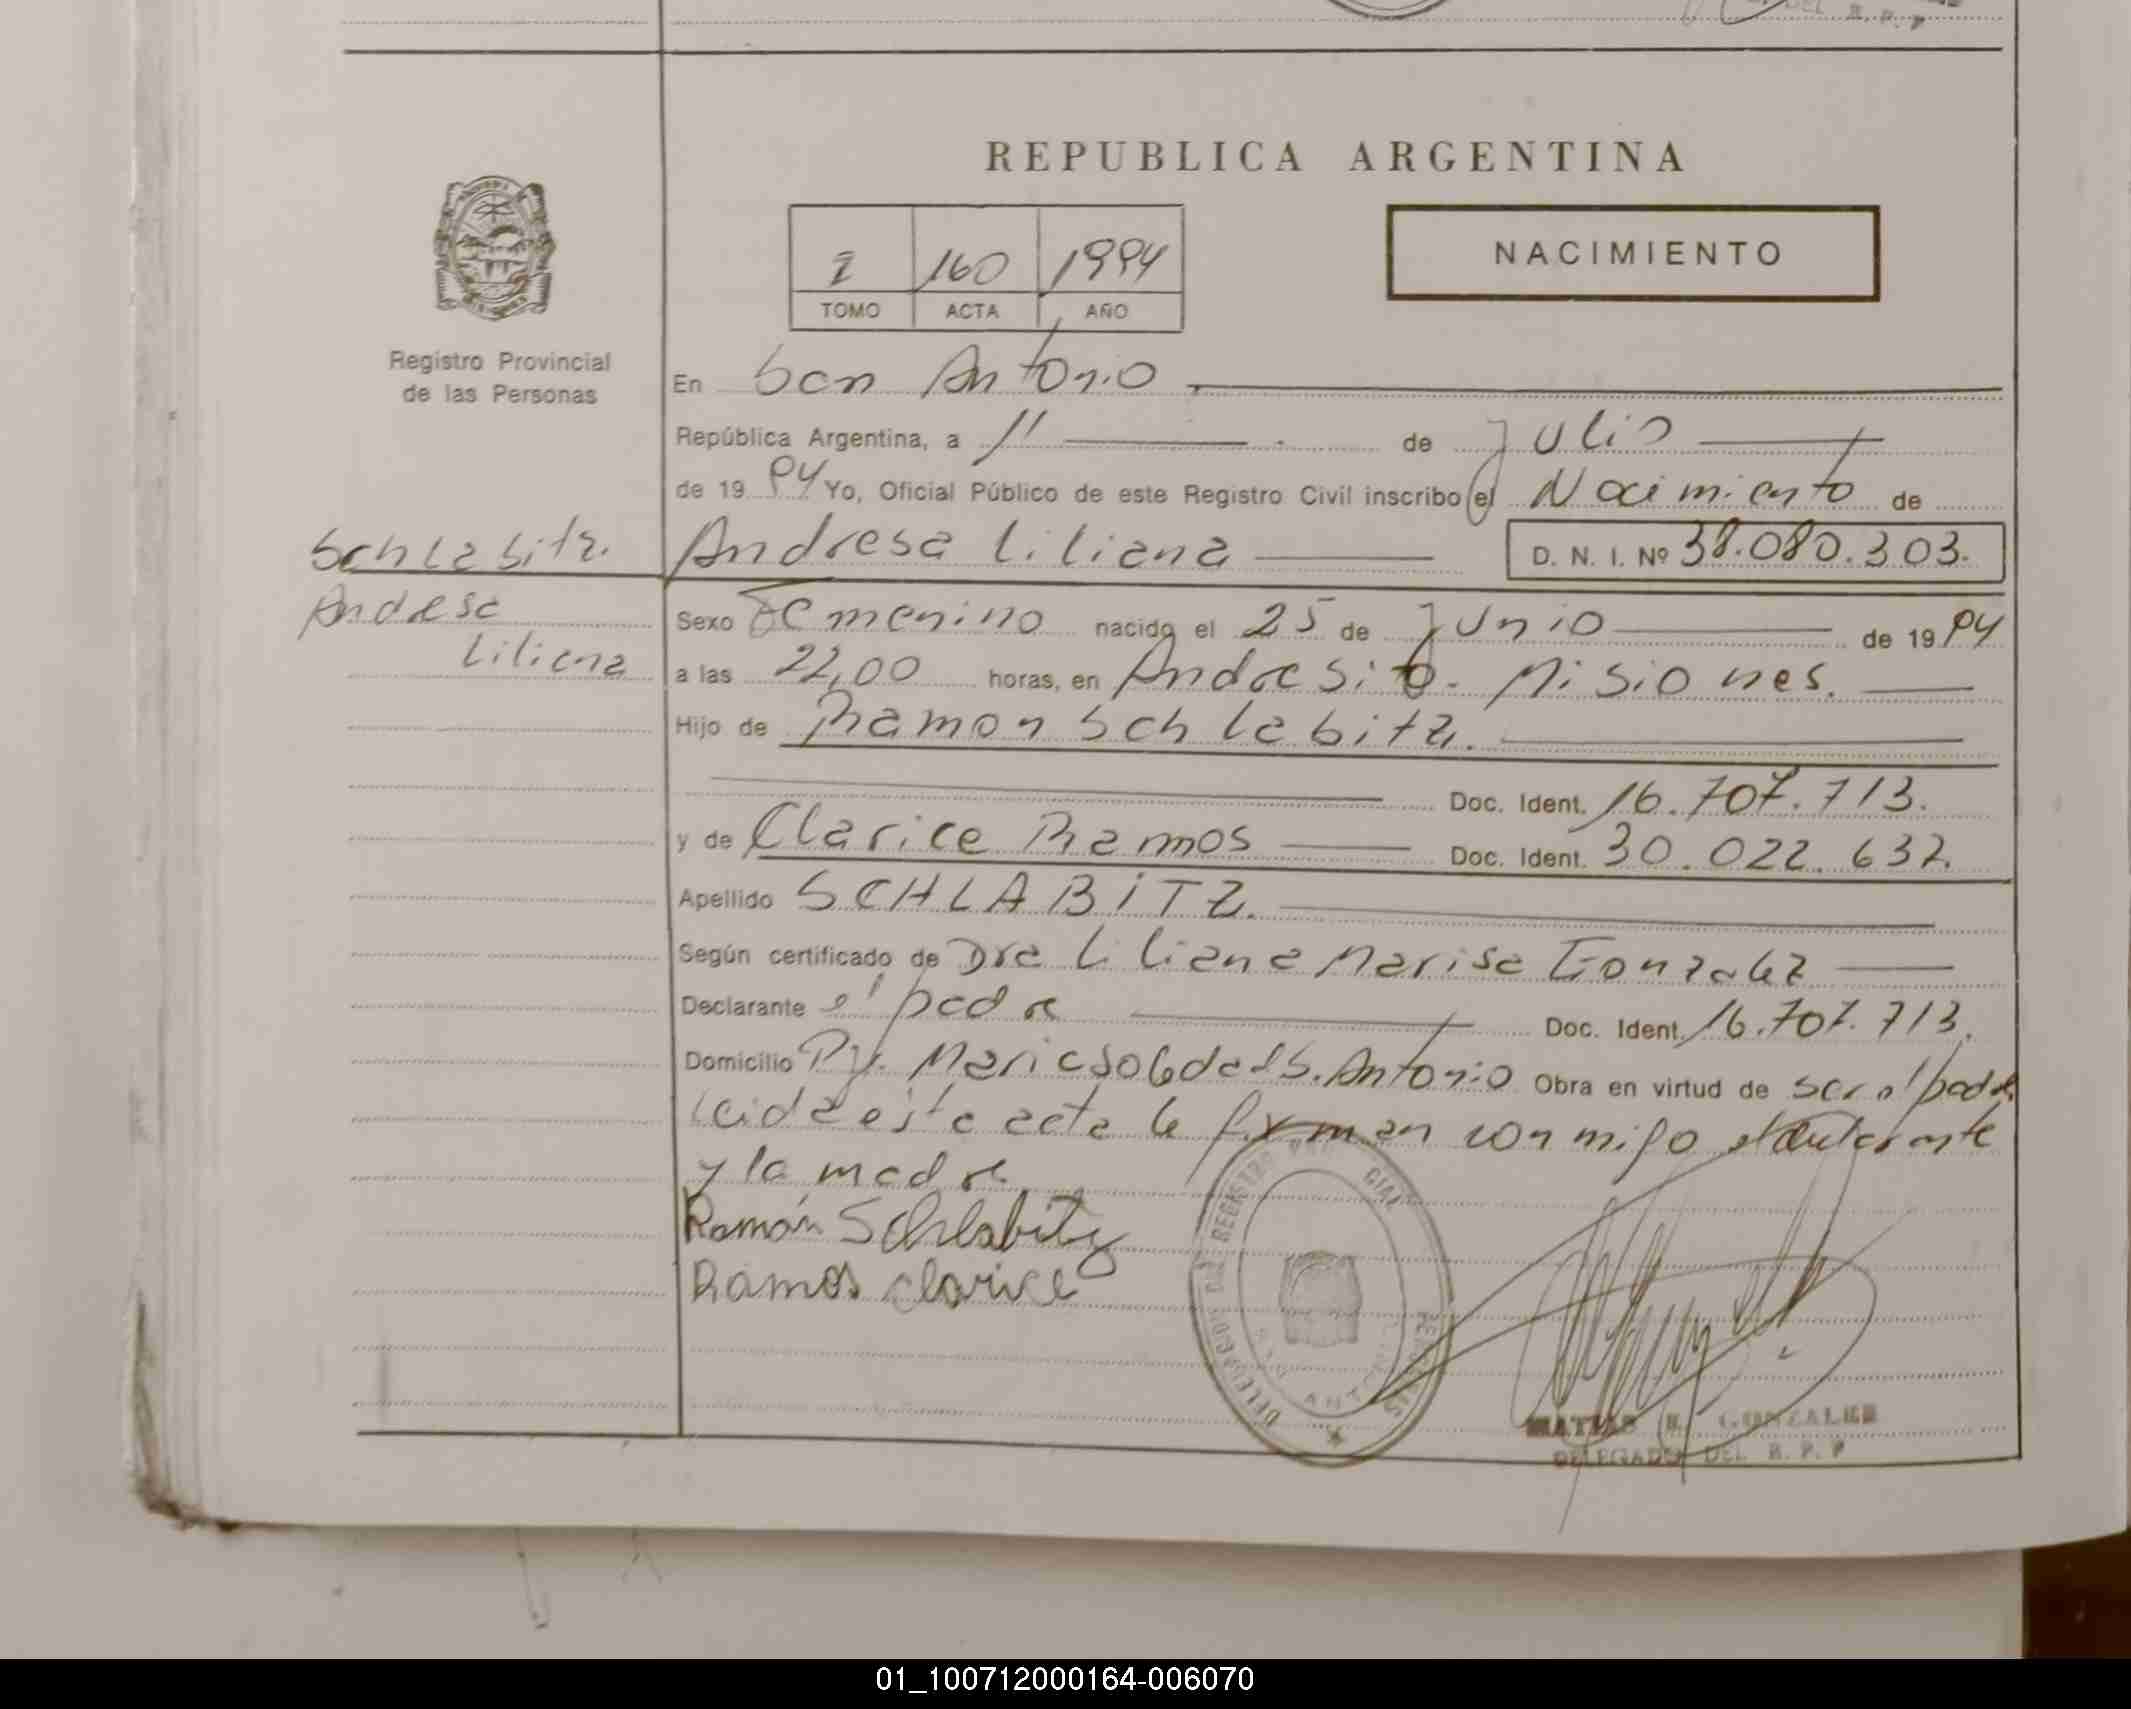 REPUBLICA ARGENTINA
I 160 1994
TOMO ACTA AÑO
NACIMIENTO
Registro Provincial
de las Personas
En San Antonio
República Argentina, a 11 de Julio
de 19 94 Yo, Oficial Público de este Registro Civil inscribo el Nacimiento de
Schlabitz. Andresa Liliana D. N. I. Nº 38.080.303.
Andresa
Liliana
Sexo Femenino nacido el 25 de Junio de 19 94
a las 22,00 horas, en Andresito. Misiones.
Hijo de Ramon Schlabitz.
Doc. Ident. 16.707.713.
y de Clarice Ramos Doc. Ident. 30.022.632.
Apellido SCHLABiTZ.
Según certificado de Dra Liliana Marisa Gonzalez
Declarante el padre Doc. Ident. 16.707.713.
Domicilio Maria Soledad S. Antonio Obra en virtud de ser el padre
leida esta acta la firman conmigo el declarante
y la madre
Ramón Schlabitz
Ramos clarice
DELEGACION DEL REGISTRO PROVINCIAL PERSONAS
SAN ANTONIO
MATIAS GONZALEZ
DELEGADO DEL R. P. P
01_100712000164-006070